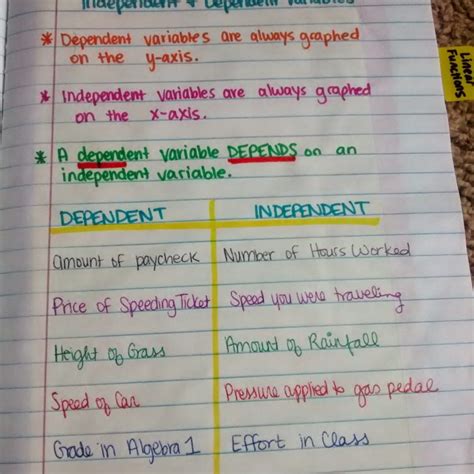 Independent & Dependent Variables
* Dependent variables are always graphed
on the y-axis.
* Independent variables are always graphed
on the x-axis.
* A dependent variable DEPENDS on an
independent variable.
Linear
Functions
DEPENDENT INDEPENDENT
Amount of paycheck Number of Hours Worked
Price of Speeding Ticket Speed you were traveling
Height of Grass Amount of Rainfall
Speed of Car Pressure applied to gas pedal
Grade in Algebra 1 Effort in Class